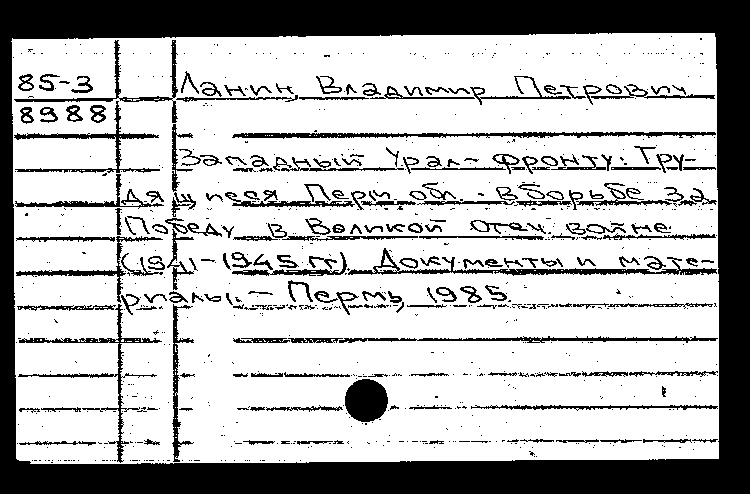 85-3 Ланин, Владимир Петрович
8988
Западный Урал - фронту: Тру-
дящиеся Перм. обл. в борьбе за
Победу в Великой Отеч. войне
(1941-1945 гг.) Документы и мате-
риалы. - Пермь, 1985